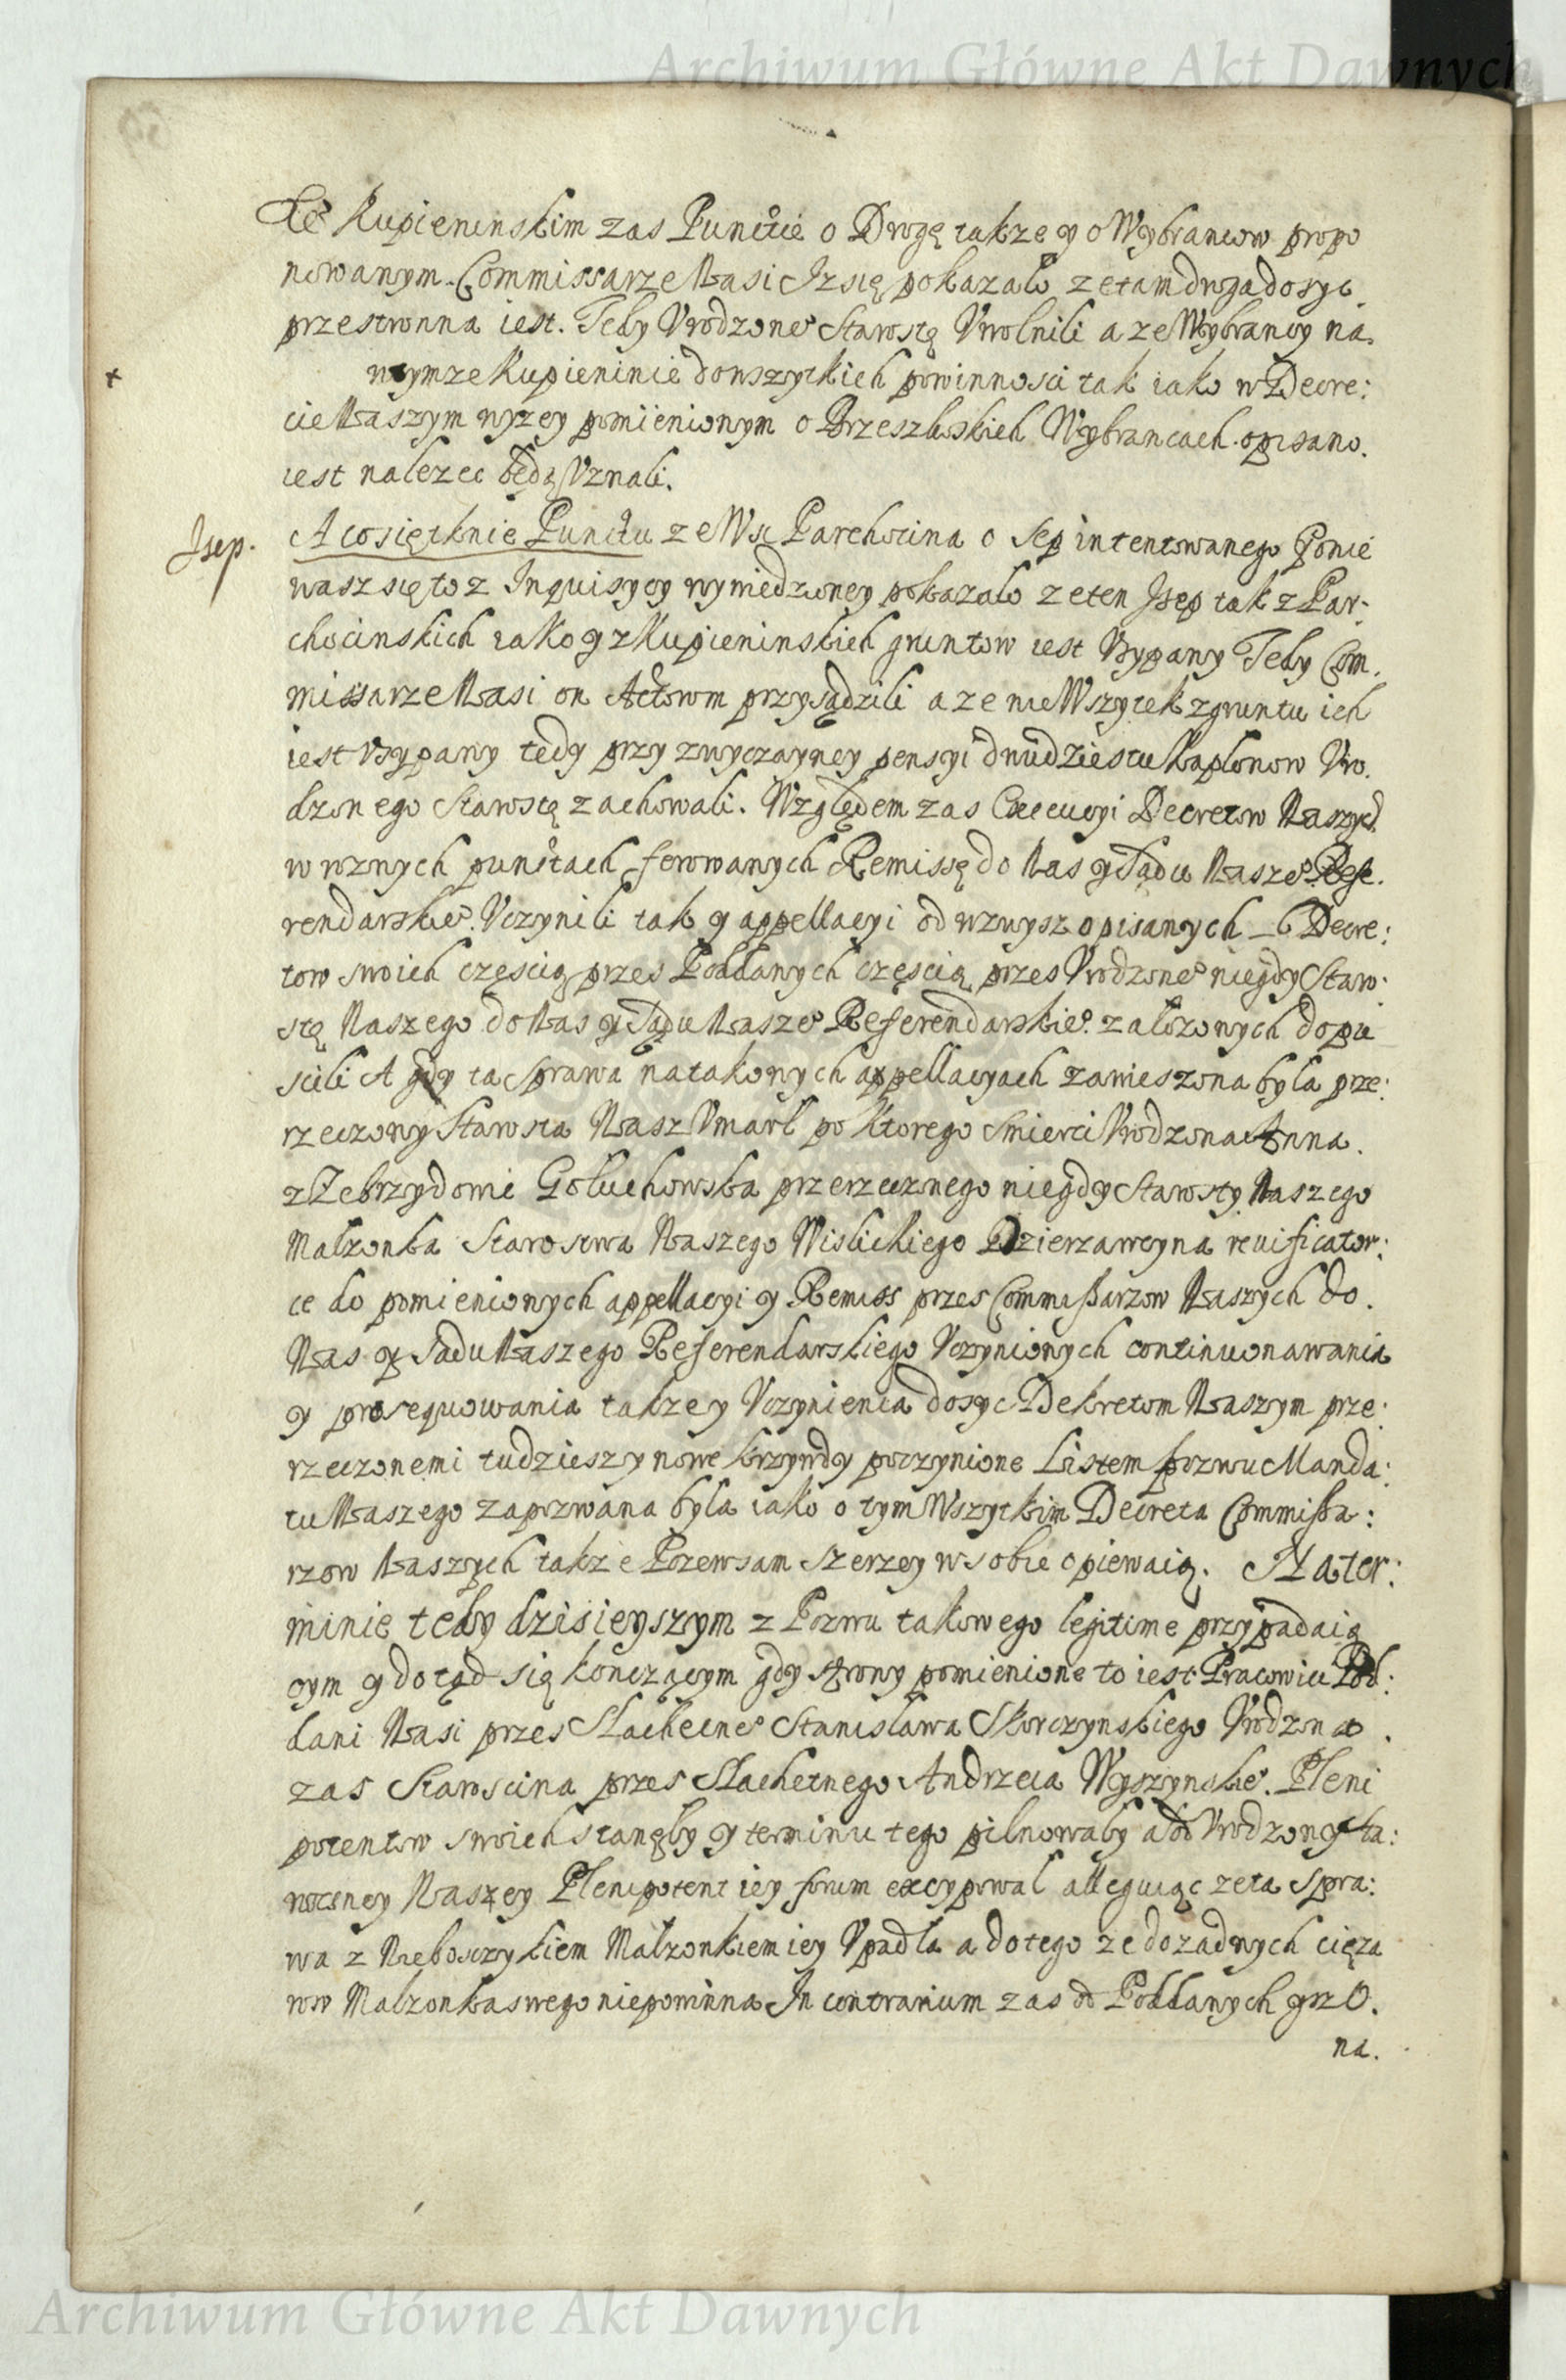 Archiwum Główne Akt Dawnych
We Kupieninskim zas Punctie o Drogę takze y o Wybrancow propo
nowanym. Commissarze Nasi Iz się pokazało ze tam droga dosyc
przestronna iest. Tedy Vrodzone° Starostę Vwolnili a ze Wybrancy na
+ wymze Kupieninie do wszytkich powinnosci tak iako w Decre:
cie Naszym wyzey pomienionym o Brzeszkoskich Wybrancach opisano.
iest nalezec będą Vznali.
Jsep. A co się tknie Punctu ze Wsi Parchocina o Sep intentowanego Ponie
wasz się to z Inquisycy wywiedzioney pokazało ze ten Jsep tak z Par:
chocinskich iako y z Kupieninskich gruntow iest Vsypany Tedy Com.
missarze Nasi on Actorom przysądzili a ze nie Wszytek z gruntu ich
iest Vsypany tedy przy zwyczayney pensyi dwudziestu kaplonow Vro.
dzonego Starostę zachowali. Względem zas Execucyi Decretow Naszych
w roznych punctach ferowanych Remissę do Nas y Sądu Nasze° Refe.
rendarskie°. Vczynili tak y appellacyi od wzwysz opisanych 6 Decre:
tow swoich częscią przes Poddanych częscią przes Vrodzone° niegdy Staro:
stę Naszego do Nas y Sądu Nasze° Referendarskie°. załozonych dopu
scili A gdy ta Sprawa na takowych appellacyach zawieszona była prze:
rzeczony Starosta Nasz Vmarł po ktorego smierci Vrodzona Anna.
z Zebrzydowic Gołuchowska przerzeczonego niegdy Starosty Naszego
Małzonka Starostwa Naszego Wislickiego Dzierzawczyna reuificator:
ie do pomienionych appellacyi y Remiss przes Commissarzow Naszych do.
Nas y Sądu Naszego Referendarskiego Vczynionych continuonawania
y prosequowania takze y Vczynienia dosyc Dekretom Naszym prze:
rzeczonemi tudziesz y nowe krzywdy poczynione Listem pozwu Manda:
tu Naszego zapozwana była iako o tym Wszytkim Decreta Commissa:
rzow Naszych takze Pozew sam szerzey w sobie opiewaią. Na ter:
minie tedy dzisieyszym z Pozwu takowego legitime przypadaią
cym y dotąd się konczącym gdy strony pomienione to iest Pracowici Pod:
dani Nasi przes Slachetne° Stanisława Skorczynskiego Vrodzona
zas Staroscina przes Slachetnego Andrzeia Wyszynskie°. Pleni
potentow swoich stanęły y terminu tego pilnowały a od Vrodzoney Sta:
roscney Naszey Plenipotent iey forum excypował alleguiąc ze ta spra:
wa z Nieboszczykiem Małzonkiem iey Vpadła a do tego ze do zadnych cięza
row Małzonka swego niepowinna In contrarium zas od Poddanych
na.
Archiwum Główne Akt Dawnych